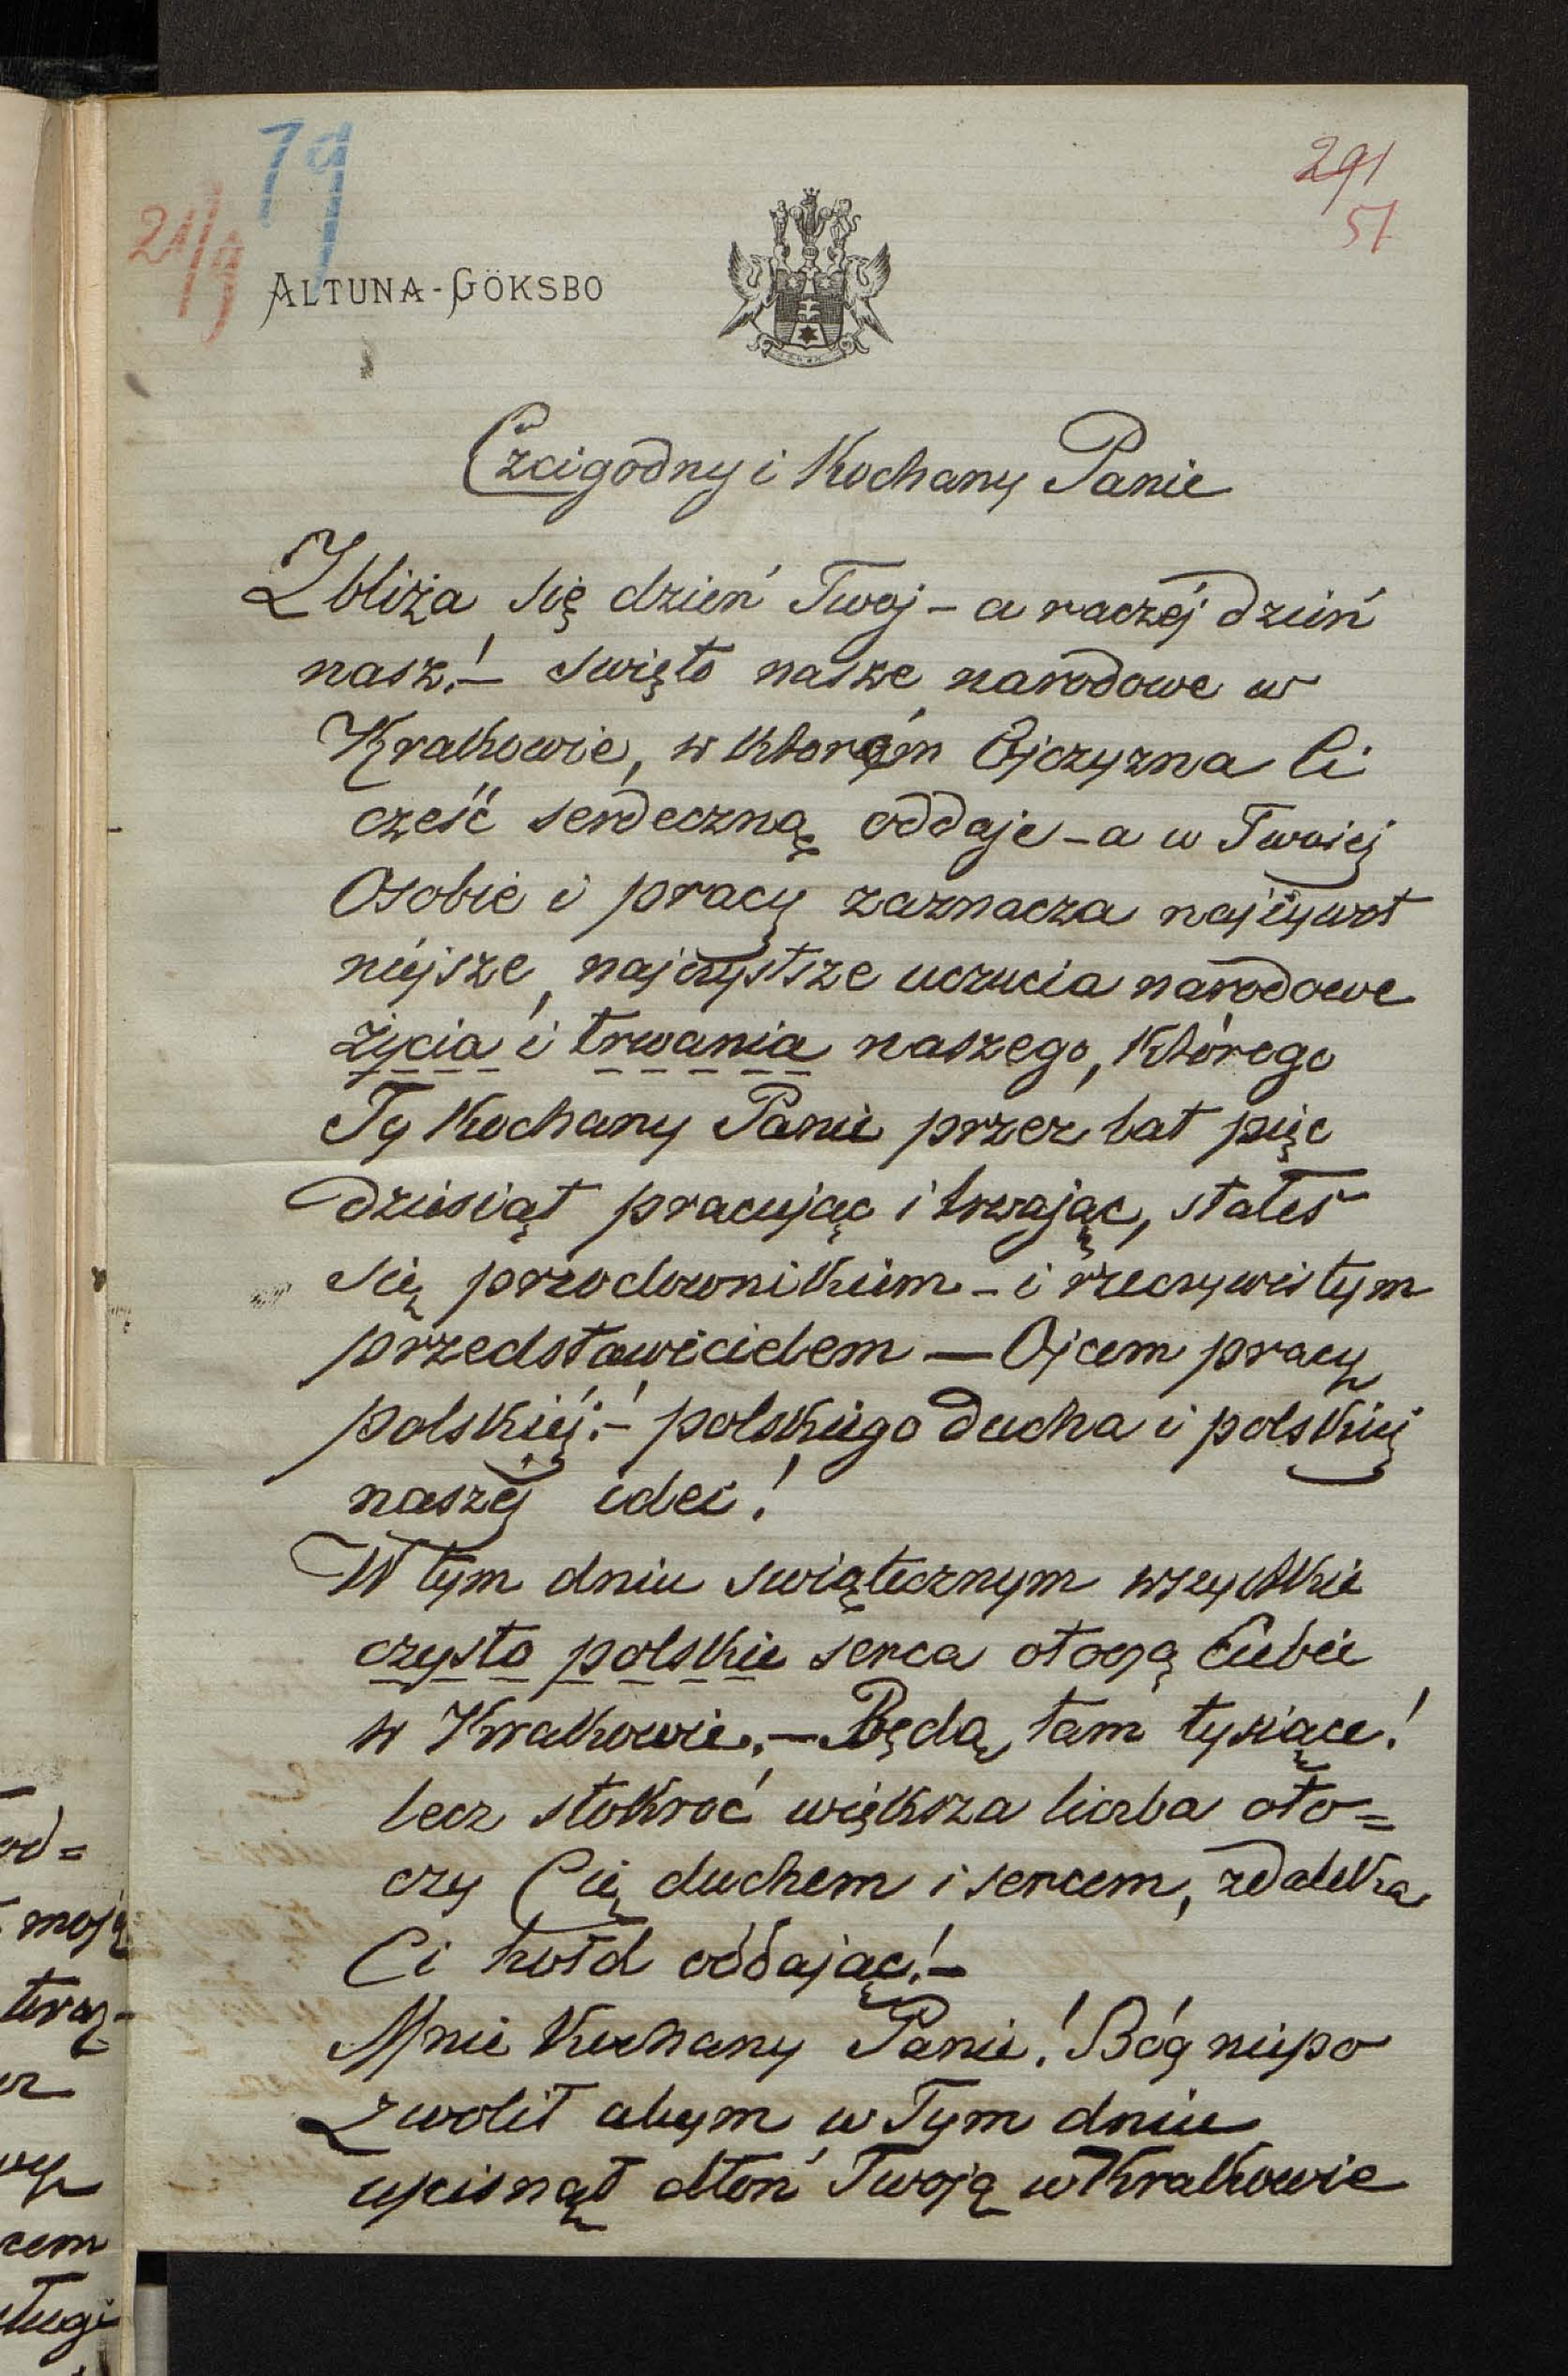 79
21/9
291
51
ALTUNA-GÖKSBO
Czcigodny i Kochany Panie
Zbliża się dzień Twoj – a raczéj dzień
nasz! – swięto nasze narodowe w
Krakowie, w ktorém Ojczyzna Ci
cześć serdeczną oddaje – a w Twoiej
Osobie i pracy zaznacza najżywot
niejsze, najczystsze uczucia narodowe
życia i trwania naszego, którego
Ty Kochany Panie przez lat pięc
dziesiąt pracując i trwając, stałeś
się przodownikiem – i rzeczywistym
przedstawicielem — Ojcem pracy
polskiéj! – polskiego ducha i polskiej
naszéj idei!
W tym dniu swiątecznym wszystkie
czysto polskie serca otoczą Ciebie
w Krakowie. – Będą tam tysiące!
lecz stokroć większa liczba oto=
czy Cię duchem i sercem, zdaleka
Ci hołd oddając! –
Mnie Kochany Panie! Bóg niepo
zwolił abym w Tym dniu
uścisnął dłoń Twoją w Krakowie
od=
moją
teraz-
cem
ługi